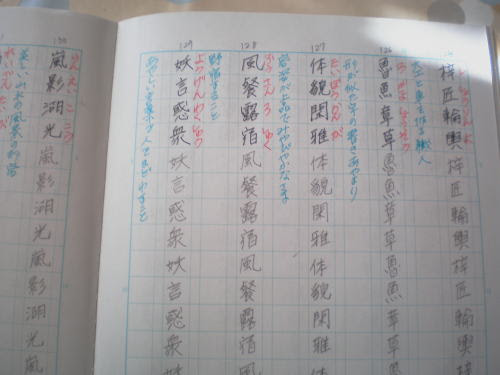 しょうりんよ
梓匠輪輿梓匠輪輿梓匠輪輿
大工と車を作る職人
126
ろぎょしょうそう
魯魚章草魯魚章草魯魚章草
形が似た字の書きあやまり
127
たいぼうかんが
体貌閑雅体貌閑雅体貌閑雅
128
ふうさんろしゅく
風餐露宿風餐露宿風餐露宿風
野宿すること
129
ようげんわくしゅう
妖言惑衆妖言惑衆妖言惑衆妖
あやしい言葉で人をまどわすこと
130
らんえいここう
嵐影湖光嵐影湖光嵐影湖光嵐
美しい山水の風景の形容